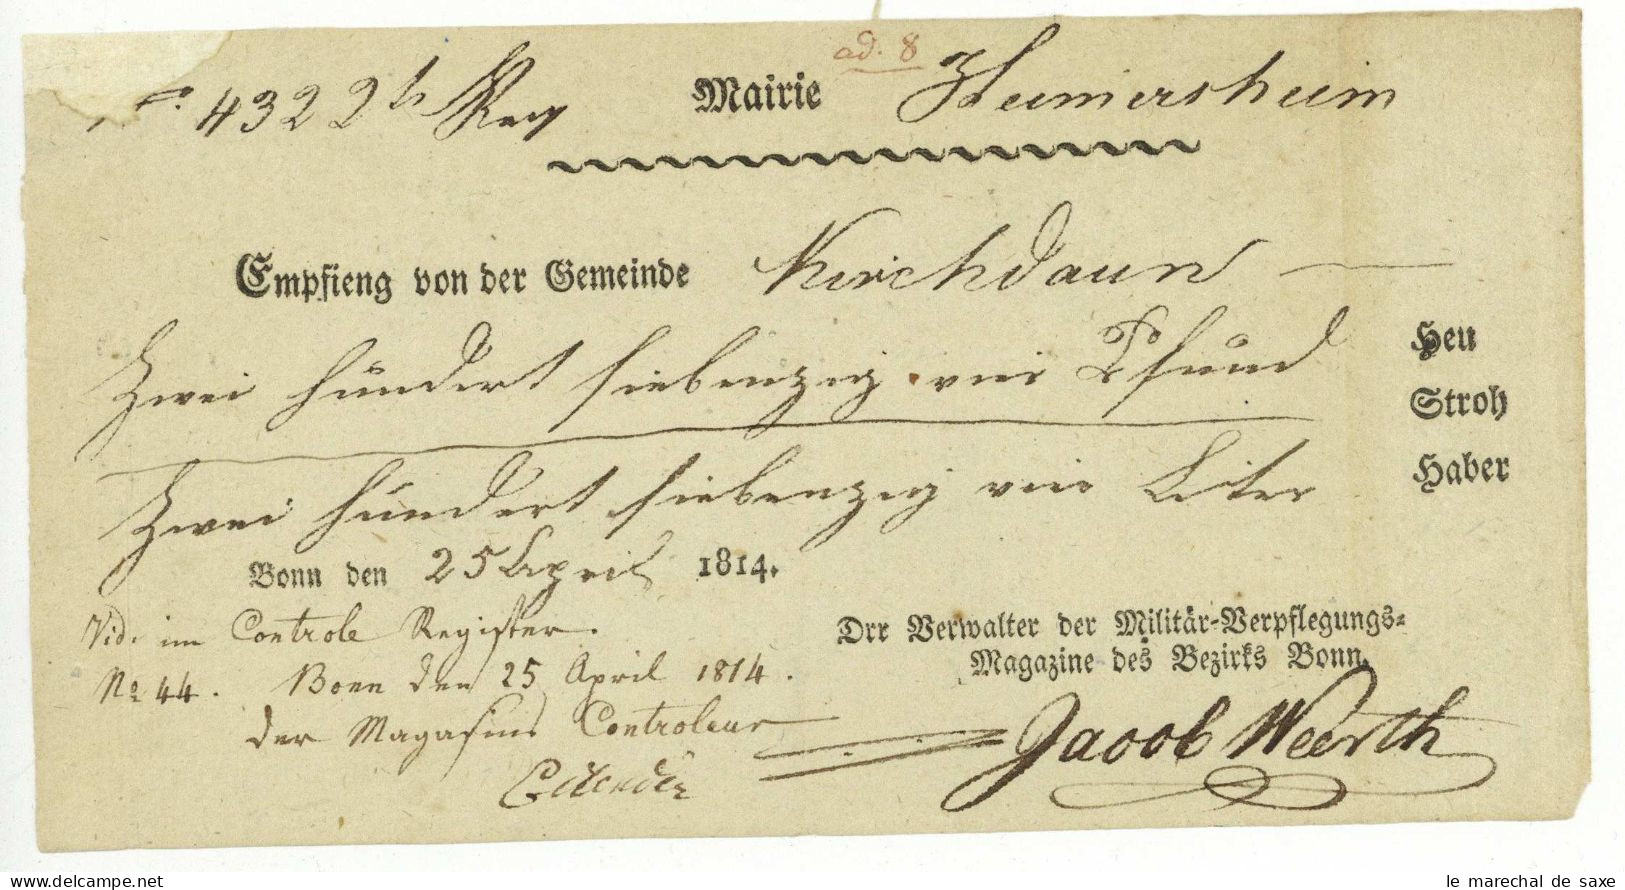 ad. 8
No. 432 2h Reg Mairie Heimersheim
Empfieng von der Gemeinde Kirchdaun
Zwei hundert siebenzig vier Pfund
Heu
Stroh
Zwei hundert siebenzig vier Liter
Haber
Bonn den 25 April 1814.
Vid. im Controle Register.
No 44. Bonn den 25 April 1814.
der Magasins Controleur
Drr Verwalter der Militär-Verpflegungs-
Magazine des Bezirks Bonn.
Jacob Weerth
www.delcampe.net
le marechal de saxe